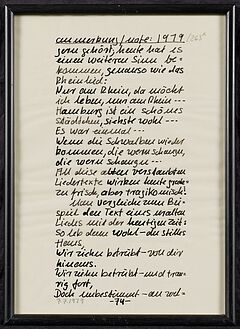 anmerkung / note: 1979 /265
gern gehört, heute hat es
einen weiteren Sinn be-
kommen, genauso wie das
Rheinlied:
Nur am Rhein, da möcht
ich leben, nur am Rhein ---
Hamburg ist ein schönes
Städtchen, siehste wohl ---
Es war einmal ---
Wenn die Schwalben wieder
kommen, die wern schaugn,
die wern schaugn ---
All diese alten verstaubten
Liedertexte wirken heute
zu frisch, aber tragikomisch!
Man vergleiche zum Bei-
spiel den Text eines uralten
Liedes mit der heutigen Zeit:
So leb denn wohl - du stilles
Haus,
Wir ziehn betrübt - von dir
hinaus.
Wir ziehn betrübt - und trau-
rig fort,
Doch unbestimmt - an wel-
7.7.1979 -74-